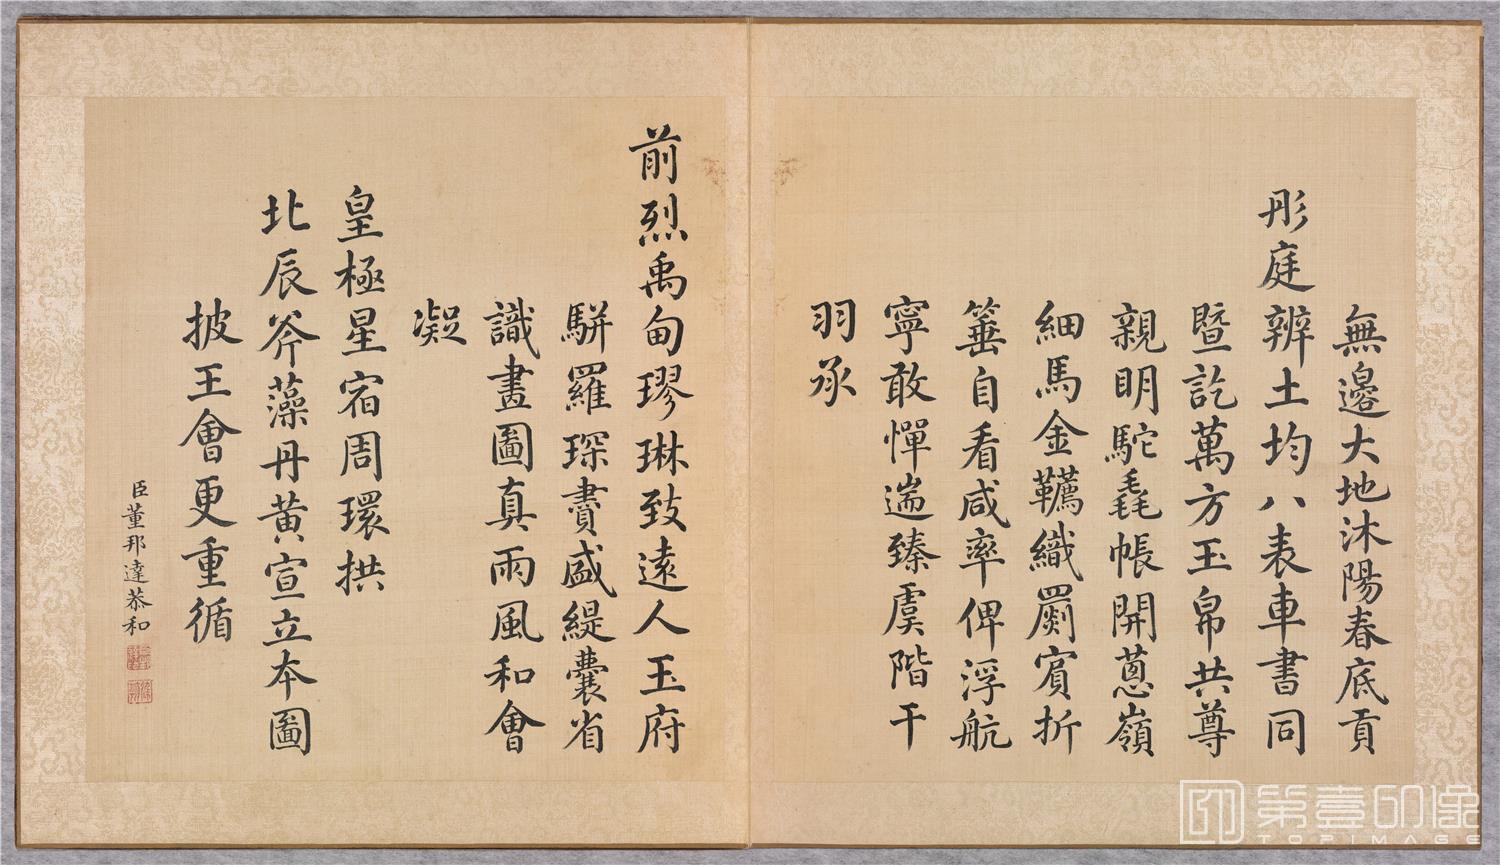 無邊大地沐陽春底貢
彤庭辨土均八表車書同
暨訖萬方玉帛共尊
親明駝毳帳開蔥嶺
細馬金韉織罽賓折
箠自看咸率俾浮航
寧敢憚遄臻虞階干
羽承
前烈禹甸璆琳致遠人玉府
駢羅琛賮盛緹囊省
識畫圖真雨風和會
凝
皇極星宿周環拱
北辰斧藻丹黃宣立本圖
披王會更重循
臣董邦達恭和
第壹印像
TOPIMAGE